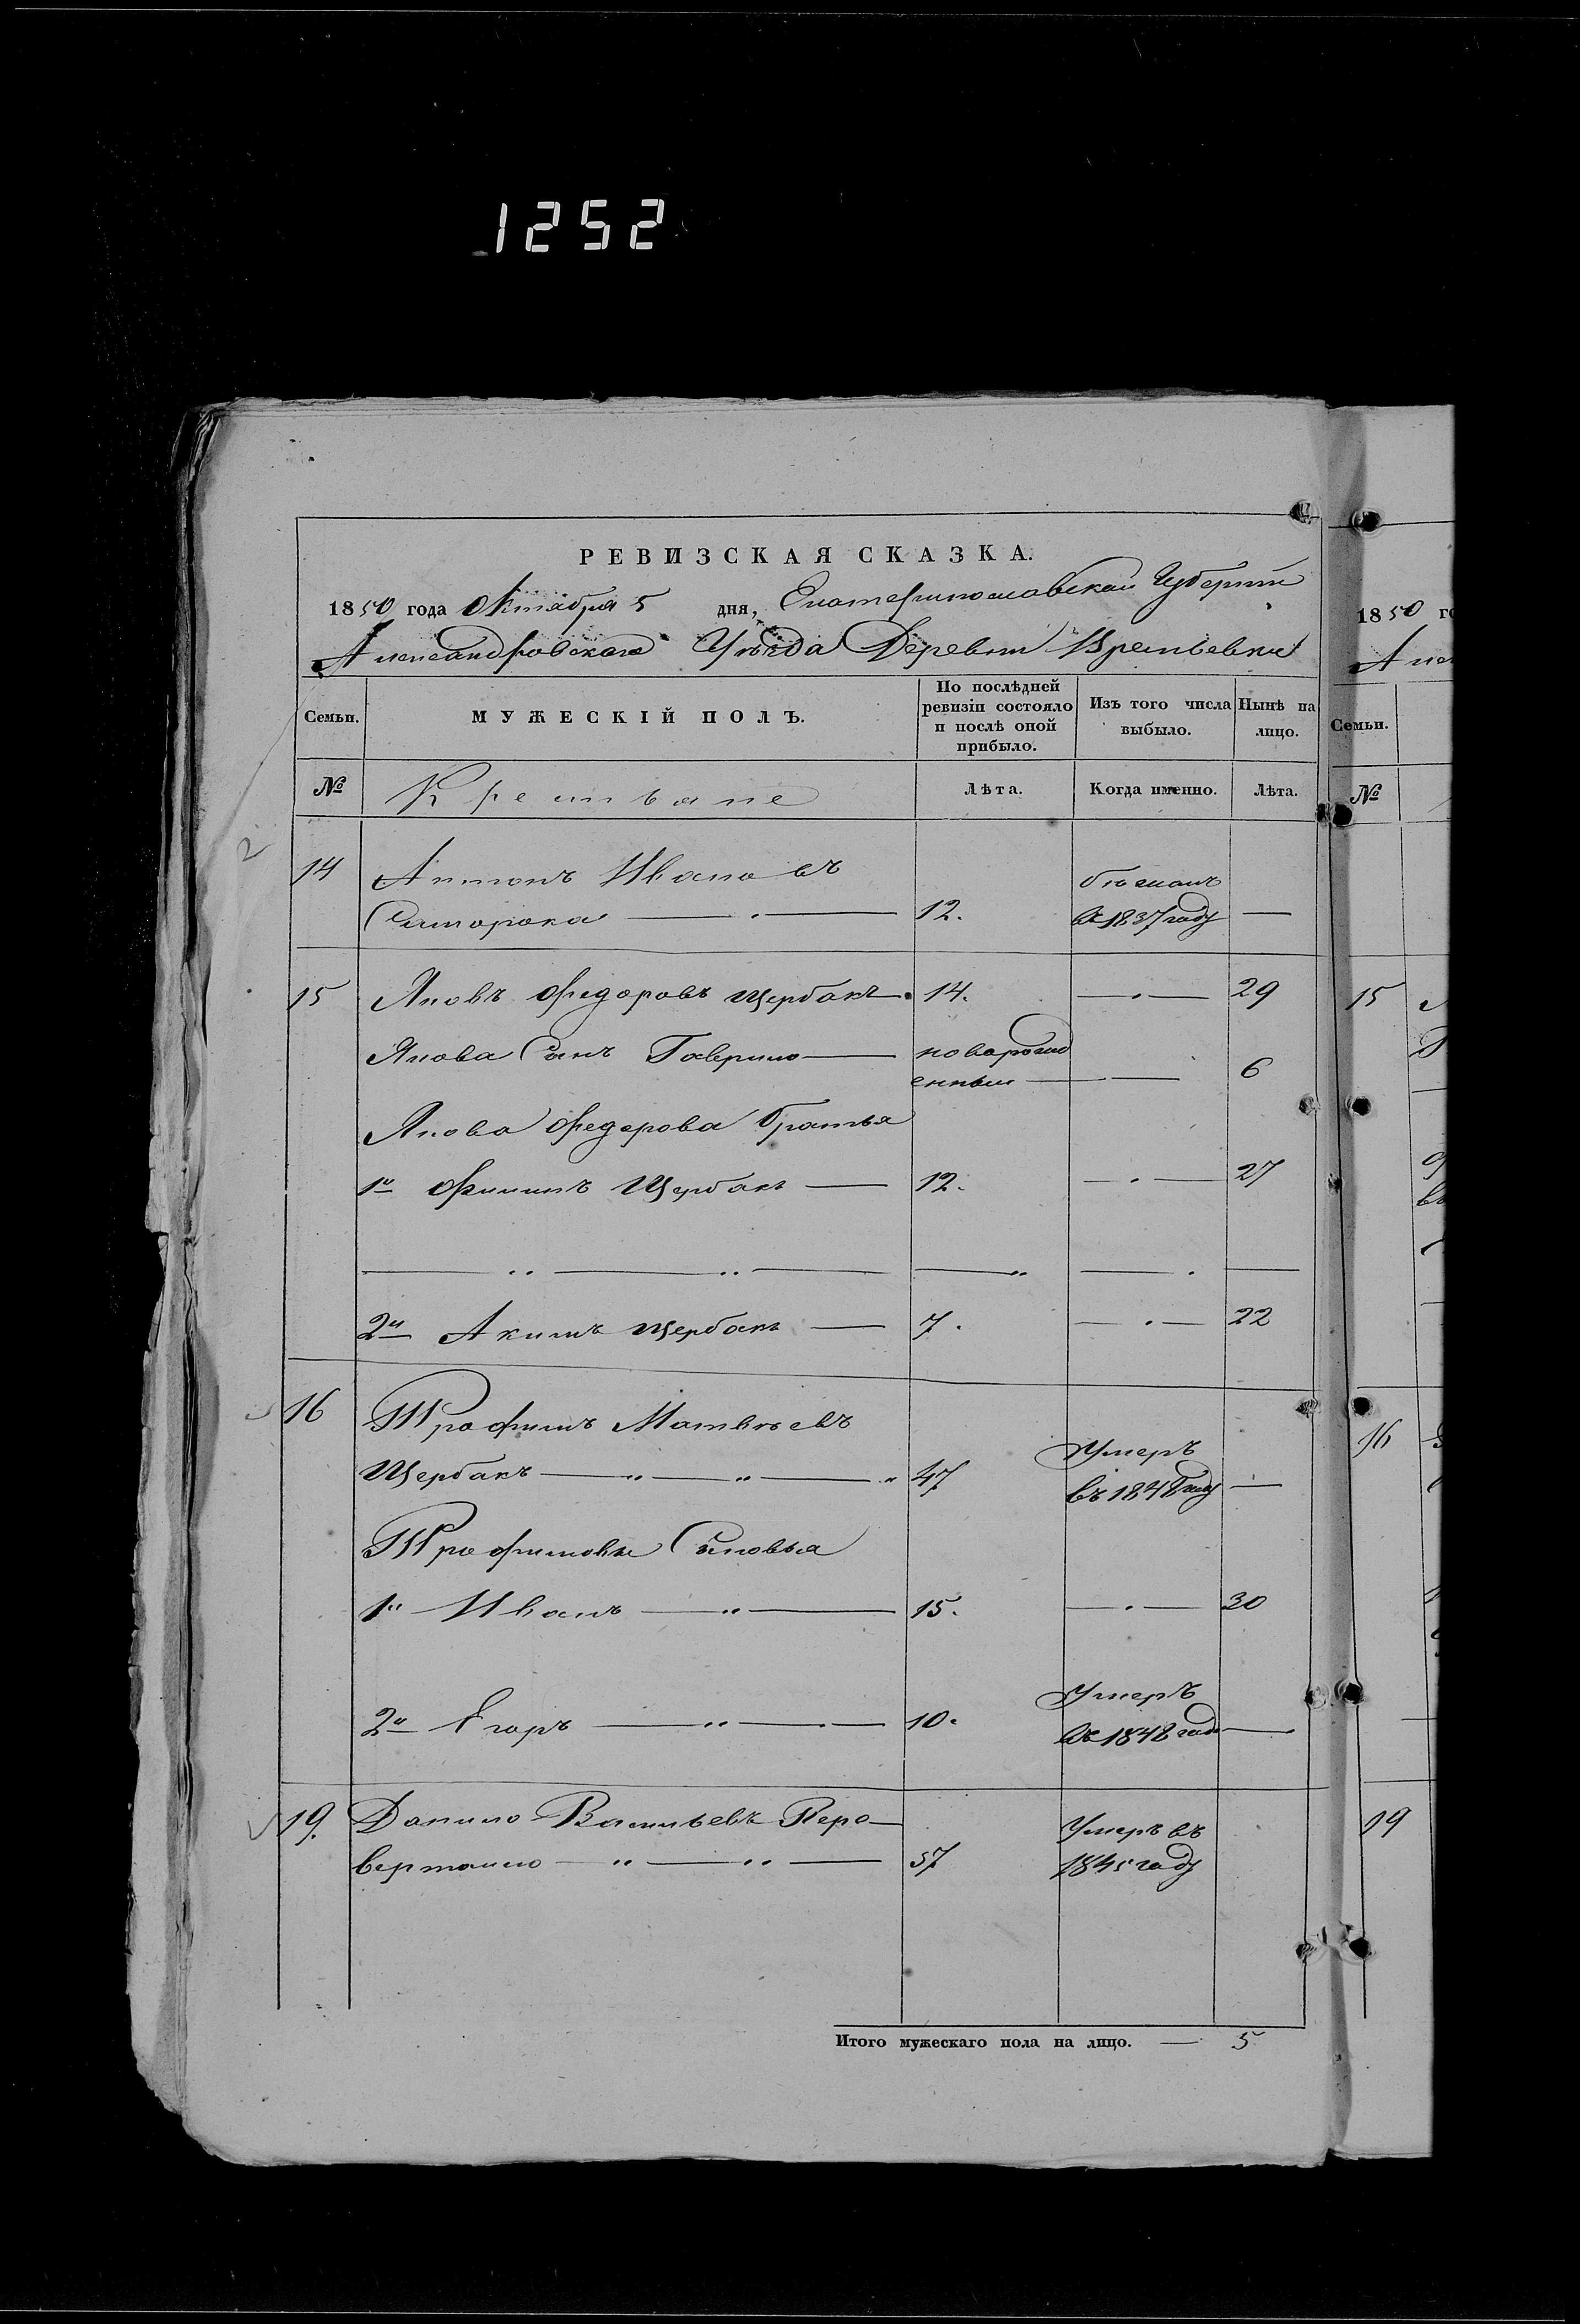 1252
РЕВИЗСКАЯ СКАЗКА.
1850 года Октября 5 дня, Екатеринославской Губернии
Александровского Уѣзда Деревни Времьевки
Семьи.
МУЖЕСКІЙ ПОЛЪ.
По послѣдней ревизіи состояло и послѣ оной прибыло.
Изъ того числа выбыло.
Нынѣ на лицо.
№
Крестьяне
Лѣта.
Когда именно.
Лѣта.
2
14 Антонъ Ивановъ бѣжалъ
12. въ 1837 году —
15 Яковъ Федоровъ Щербакъ 14. — 29
Якова Сынъ Гаврило — новорожд
енный — 6
Якова Федорова Братья
1й Филипъ Щербакъ — 12. — 27
2й Акимъ Щербакъ — 7. — 22
16 Трофимъ Матвѣевъ Умеръ
Щербакъ — 47 въ 1848 году —
Трофимовы Сыновья
1й Иванъ — 15. — 30
Умеръ
2й Егоръ — 10. въ 1848 году —
19. Данило Васильевъ Пере- Умеръ въ
вертайло — 57 1845 году
Итого мужескаго пола на лицо. — 5
1850 го
Семьи.
№
15
16
19